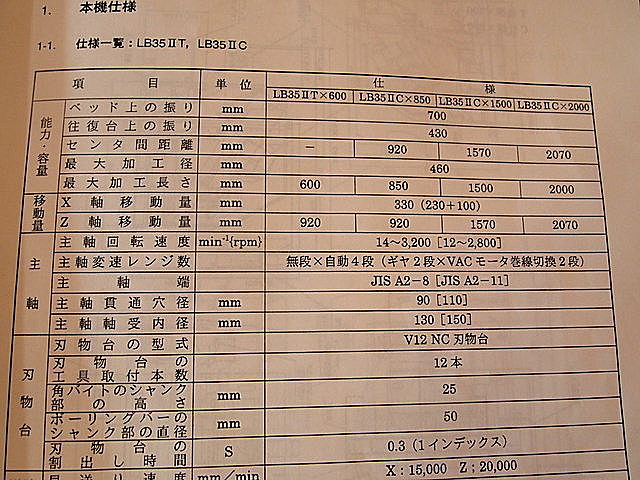 1. 本機仕様
1-1. 仕様一覧：LB35ⅡT，LB35ⅡC
項 目 単 位 仕 様
LB35ⅡT×600 LB35ⅡC×850 LB35ⅡC×1500 LB35ⅡC×2000
能力・容量
ベッド上の振り mm 700
往復台上の振り mm 430
センタ間距離 mm − 920 1570 2070
最大加工径 mm 460
最大加工長さ mm 600 850 1500 2000
移動量
X軸移動量 mm 330（230＋100）
Z軸移動量 mm 920 920 1570 2070
主軸
主軸回転速度 min⁻¹{rpm} 14〜3,200［12〜2,800］
主軸変速レンジ数 無段×自動4段（ギヤ2段×VACモータ巻線切換2段）
主軸端 JIS A2−8［JIS A2−11］
主軸貫通穴径 mm 90［110］
主軸軸受内径 mm 130［150］
刃物台
刃物台の型式 V12 NC刃物台
刃物台の
工具取付本数 12本
角バイトのシャンク
部の高さ mm 25
ボーリングバーの
シャンク部の直径 mm 50
刃物台の
割出し時間 S 0.3（1インデックス）
早送り速度 mm／min X：15,000 Z；20,000